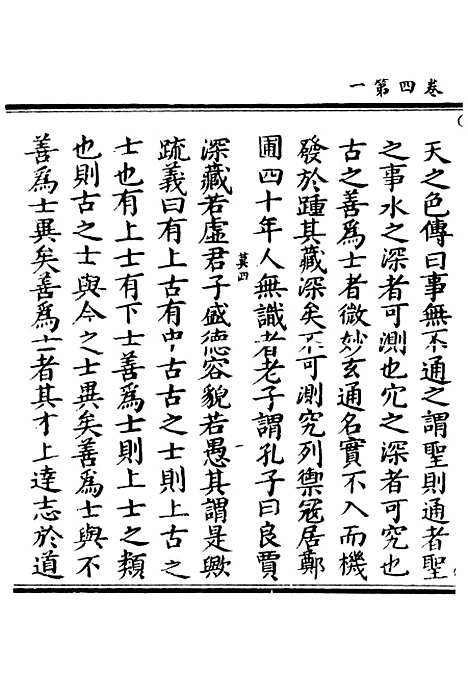 卷四第一
天之色傳曰事無不通之謂聖則通者聖
之事水之深者可測也穴之深者可究也
古之善爲士者微妙玄通名實不入而機
發於踵其藏深矣不可測究列禦冠居鄭
圃四十年人無識者老子謂孔子曰良賈
莫四
深藏若虛君子盛德容貌若愚其謂是歟
疏義曰有上古有中古古之士則上古之
士也有上士有下士善爲士則上士之類
也則古之士與今之士異矣善爲士與不
善爲士異矣善爲士者其才上達志於道